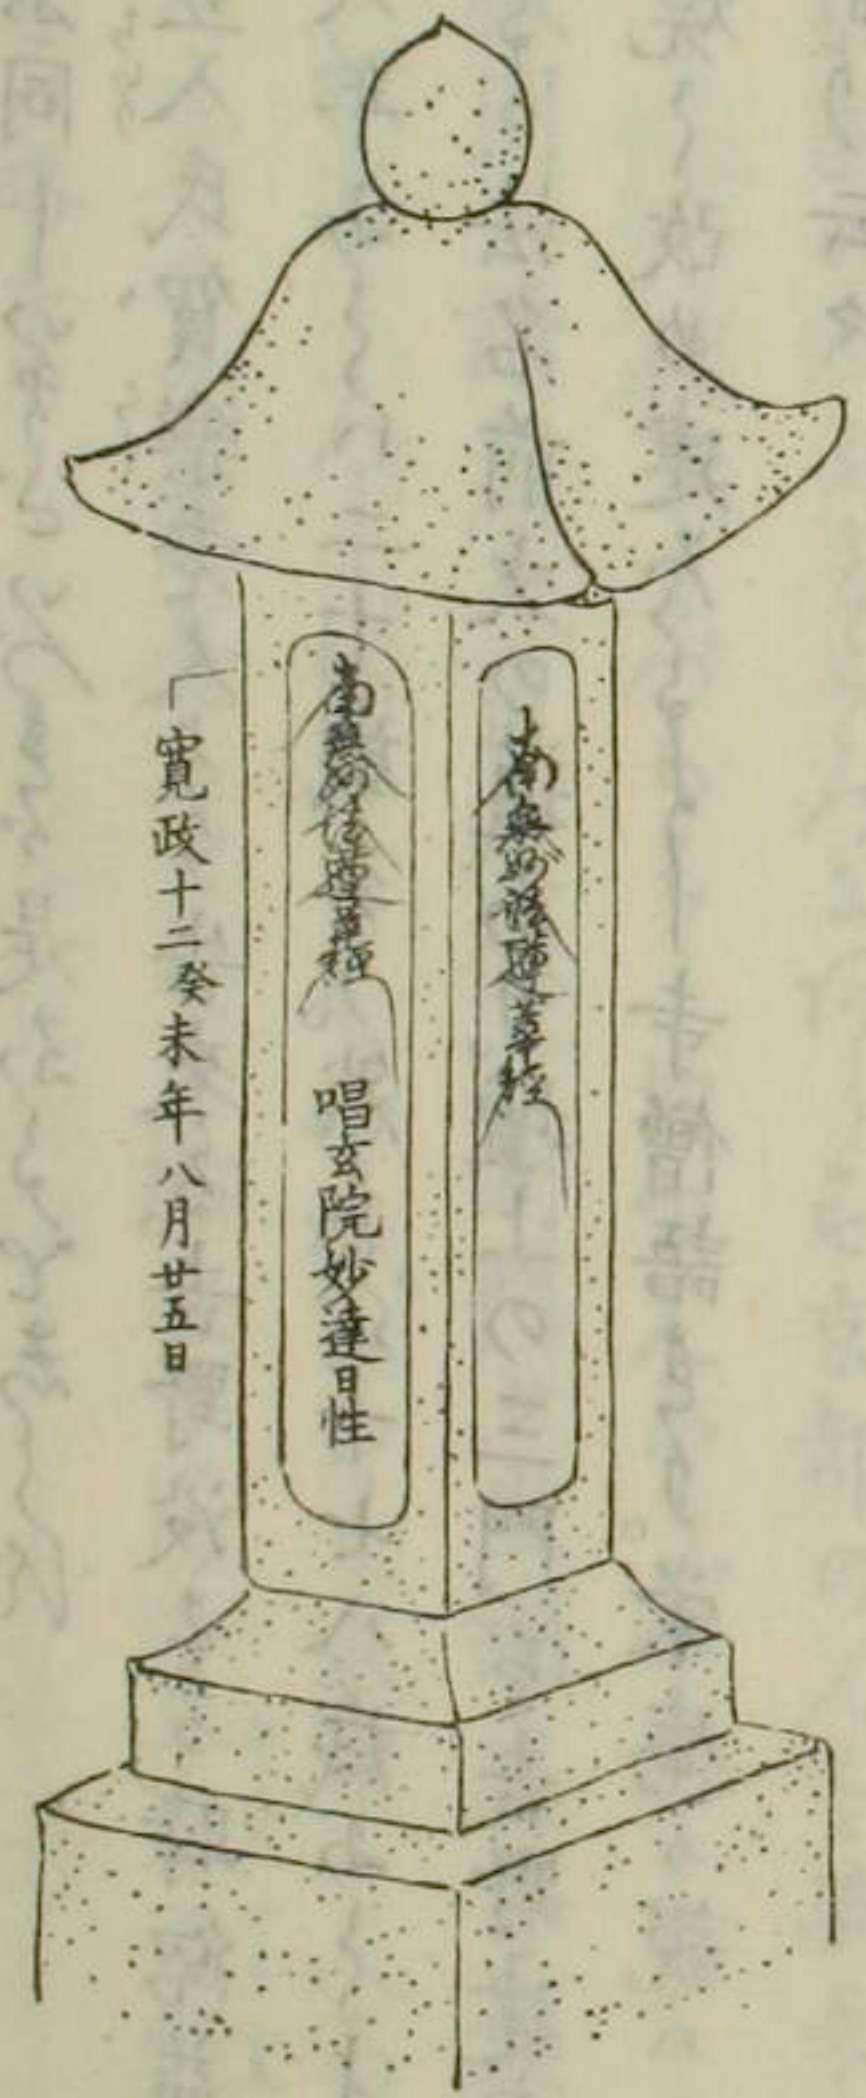 南無妙法蓮華經
南無妙法蓮華經 唱玄院妙達日性
寛政十二癸未年八月廿五日